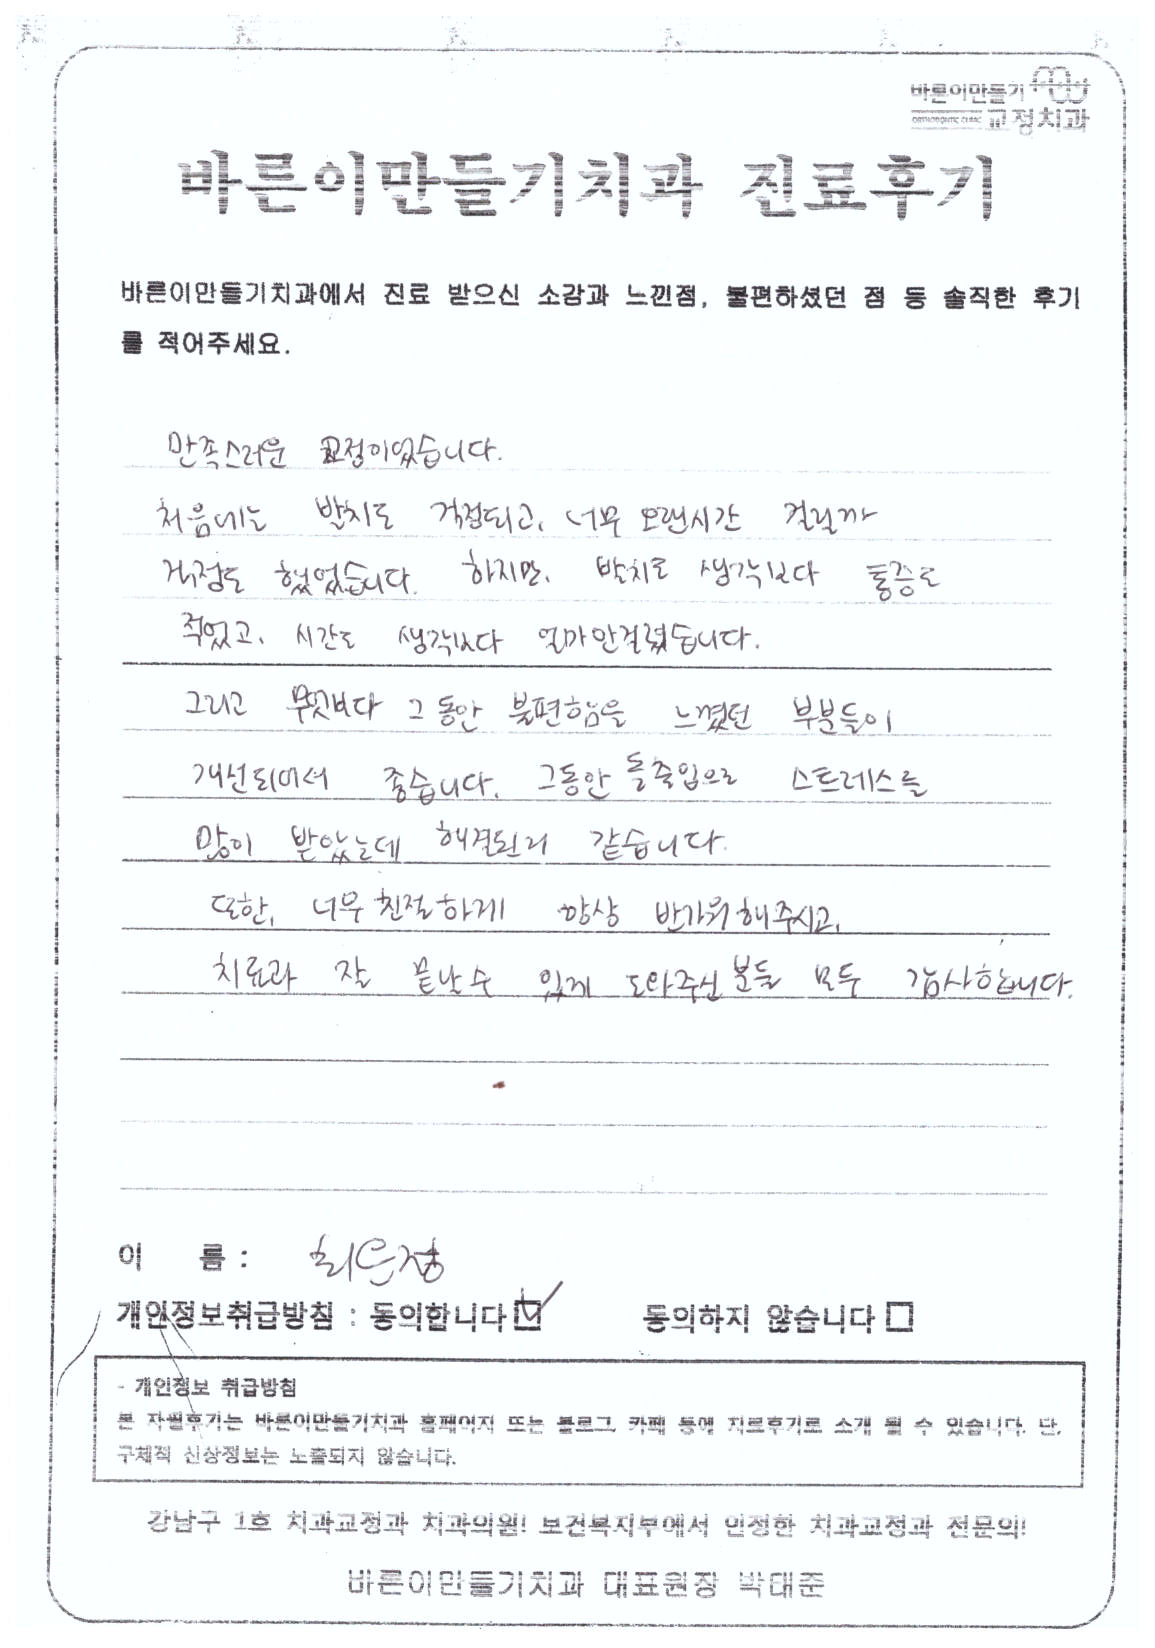 바른이만들기
ORTHODONTIC CLINIC 교정치과
바른이만들기치과 진료후기
바른이만들기치과에서 진료 받으신 소감과 느낀점, 불편하셨던 점 등 솔직한 후기
를 적어주세요.
만족스러운 교정이었습니다.
처음에는 발치도 걱정되고, 너무 오랜시간 걸릴까
걱정도 했었습니다. 하지만, 발치도 생각보다 통증도
적었고, 시간도 생각보다 얼마안걸렸습니다.
그리고 무엇보다 그동안 불편함을 느꼈던 부분들이
개선되어서 좋습니다. 그동안 돌출입으로 스트레스를
많이 받았는데 해결된거 같습니다.
또한, 너무 친절하게 항상 반가워해주시고,
치료과 잘 끝날수 있게 도와주신 분들 모두 감사합니다.
이 름 : 최은정
개인정보취급방침 : 동의합니다 동의하지 않습니다
- 개인정보 취급방침
본 자필후기는 바른이만들기치과 홈페이지 또는 블로그, 카페 등에 치료후기로 소개 될 수 있습니다. 단,
구체적 신상정보는 노출되지 않습니다.
강남구 1호 치과교정과 치과의원! 보건복지부에서 인정한 치과교정과 전문의!
바른이만들기치과 대표원장 박태준